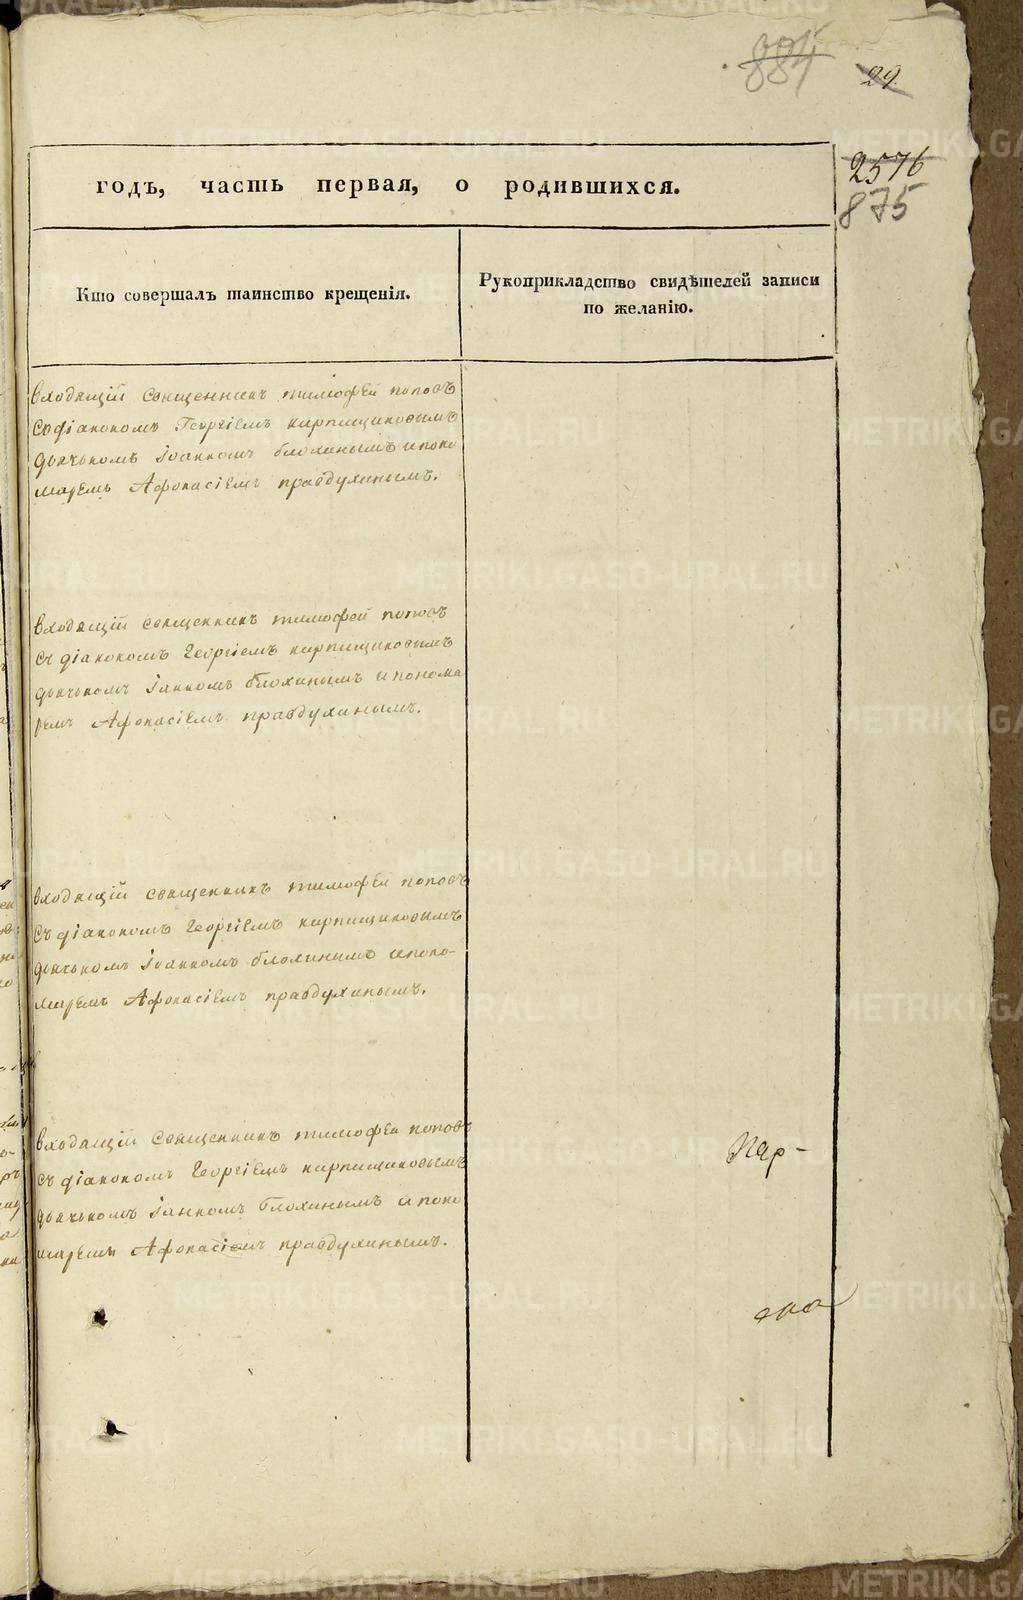 884
29.
2576
875
годъ, часть первая, о родившихся.
Кто совершалъ таинство крещенія.
Рукоприкладство свидѣтелей записи
по желанію.
входящій священникъ тимофей поповъ
съ діакономъ Георгіемъ кирпищиковымъ
дьячькомъ Іоанномъ блохинымъ и поно
маремъ Афонасіемъ правдухинымъ.
входящій священникъ тимофей поповъ
съ діакономъ Георгіемъ кирпищиковымъ
дьячькомъ Іанномъ блохинымъ и понома
ремъ Афонасіемъ правдухинымъ.
входящій священникъ тимофей поповъ
съ діакономъ Георгіемъ кирпищиковымъ
дьячькомъ Іоанномъ блохинымъ и поно-
маремъ Афонасіемъ правдухинымъ.
входящій священникъ тимофей поповъ
съ діакономъ Георгіемъ кирпищиковымъ
дьячькомъ Іанномъ блохинымъ и поно
маремъ Афонасіемъ правдухинымъ.
METRIKI.GASO-URAL.RU